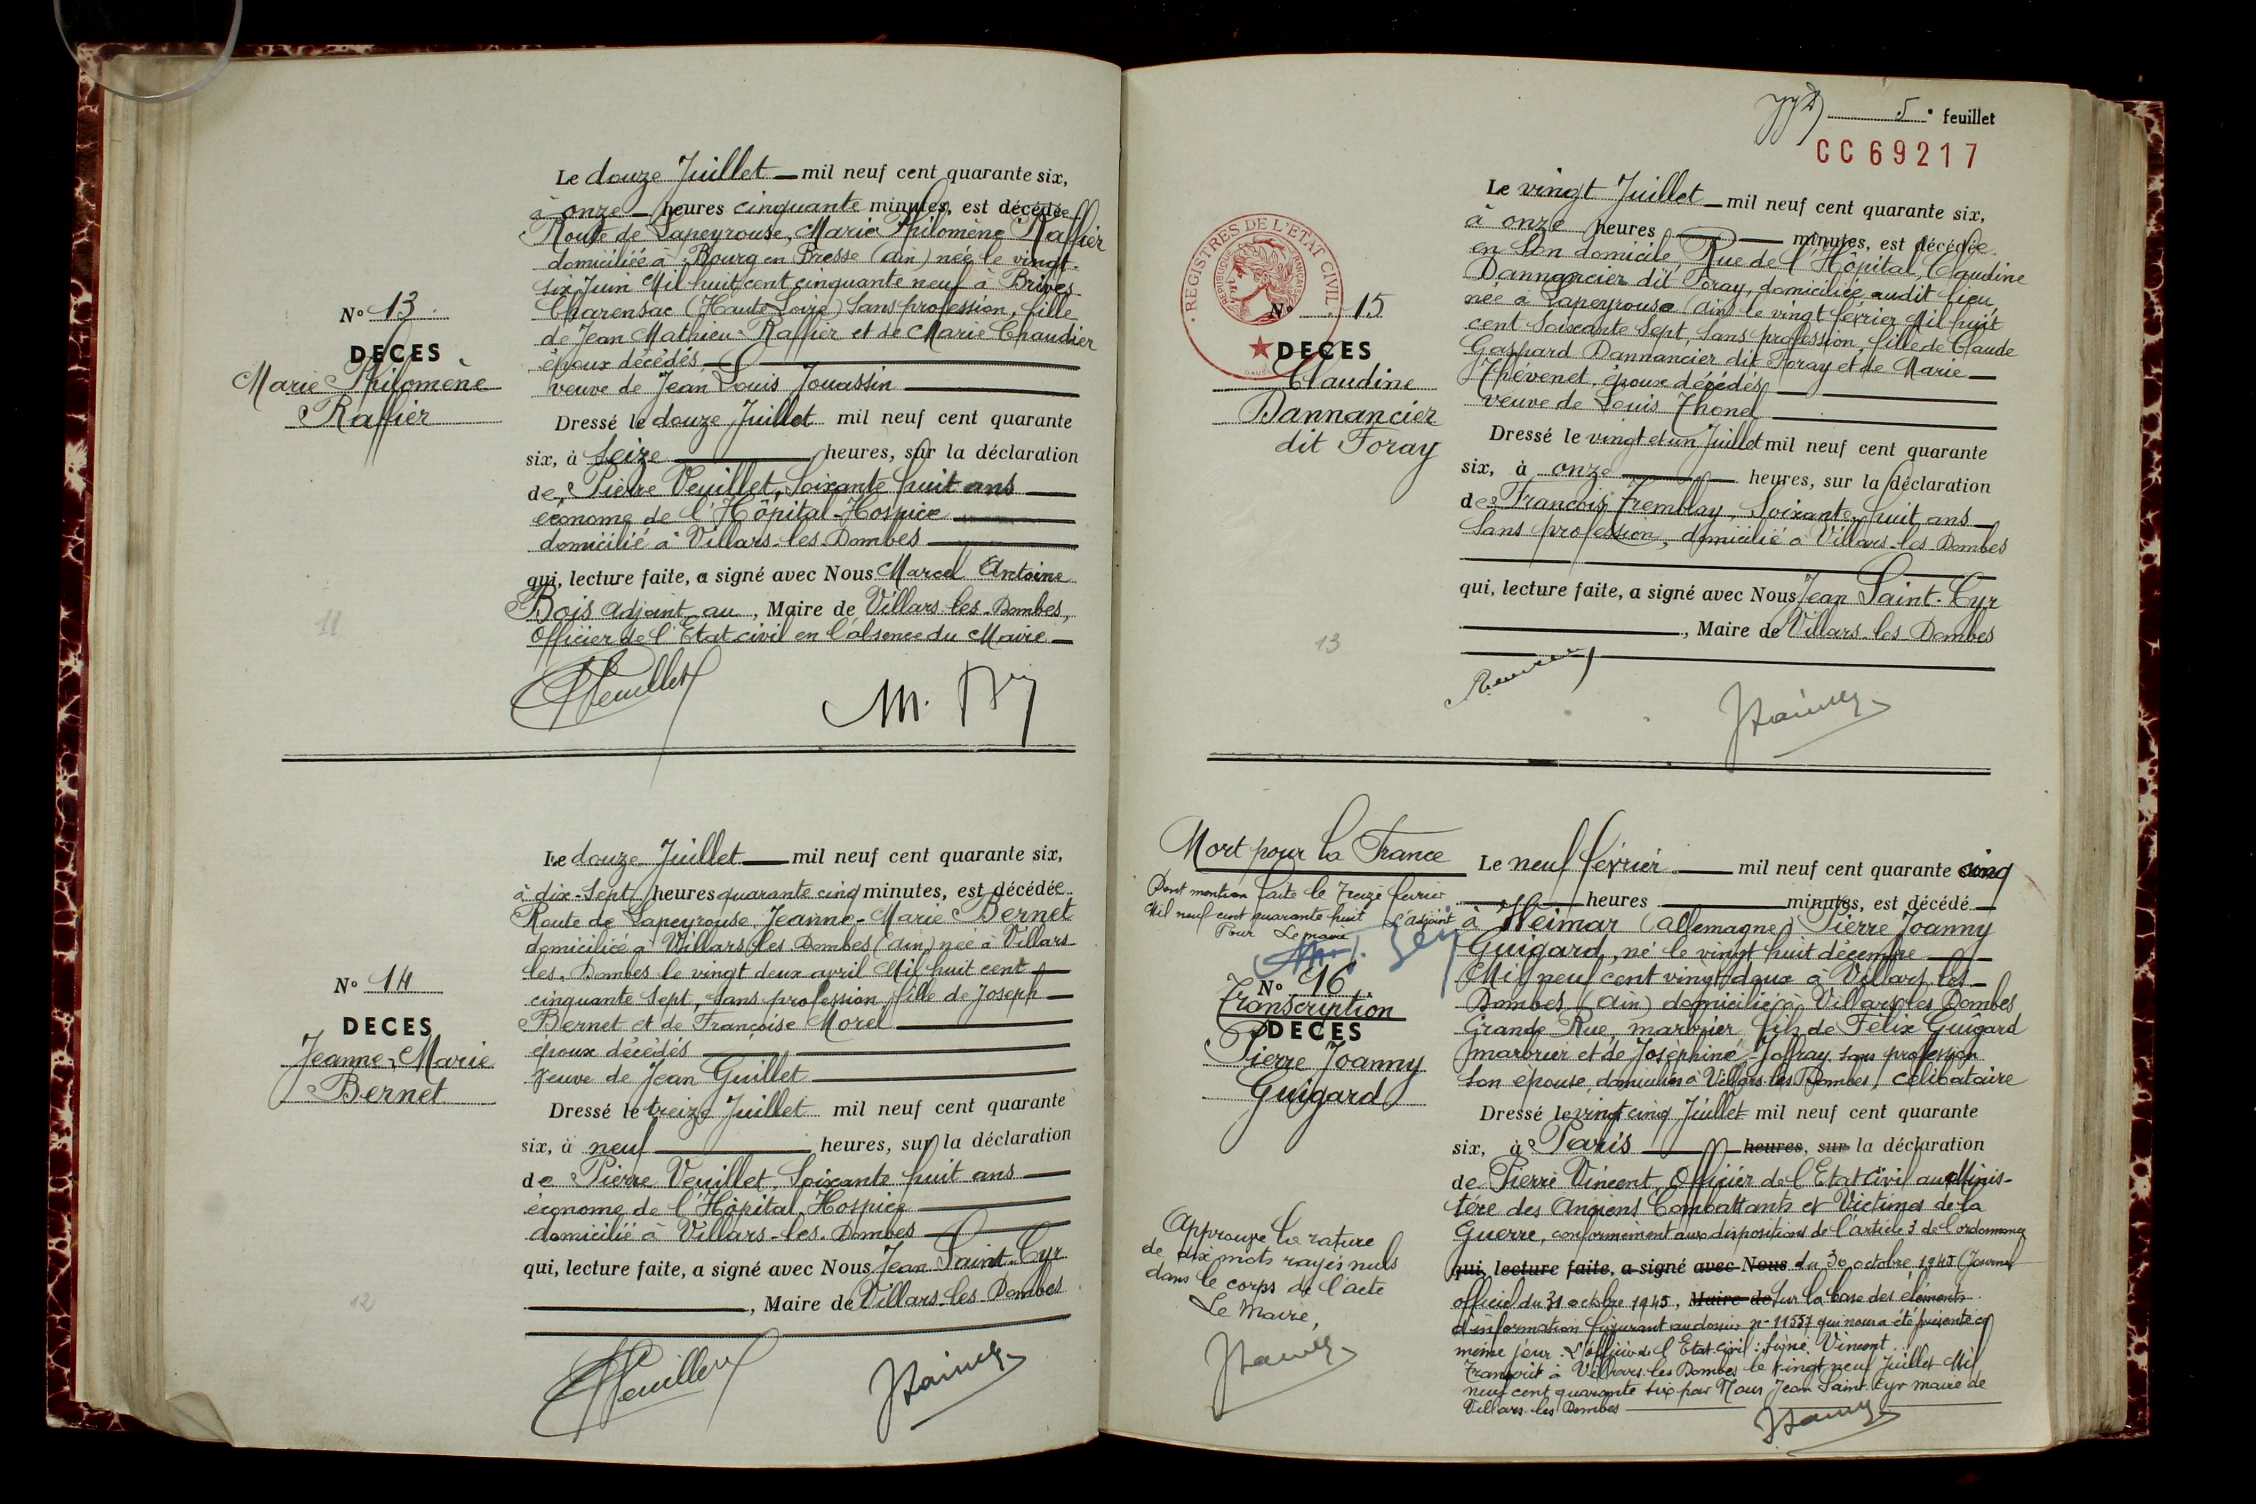 Le douze Juillet mil neuf cent quarante six,
à onze heures cinquante minutes, est décédée
Route de Lapeyrouse, Marie Philomène Raffier
domiciliée à Bourg en Bresse (Ain) née le vingt-
six Juin Mil huit cent cinquante neuf à Brives
Charensac (Haute Loire) Sans profession, fille
de Jean Mathieu Raffier et de Marie Chaudier
époux décédés
veuve de Jean Louis Jouassin
N° 13
DECES
Marie Philomène
Raffier
Dressé le douze Juillet mil neuf cent quarante
six, à Seize heures, sur la déclaration
de Pierre Veuillet, Soixante huit ans
économe de l'Hôpital-Hospice
domicilié à Villars-les-Dombes
qui, lecture faite, a signé avec Nous Marcel Antoine
Bois adjoint au, Maire de Villars les Dombes,
Officier de l'Etat civil en l'absence du Maire
11
Veuillet
M. Bois
Le douze Juillet mil neuf cent quarante six,
à dix-sept heures quarante cinq minutes, est décédée
Route de Lapeyrouse Jeanne-Marie Bernet
domiciliée à Villars les Dombes (Ain) née à Villars
les Dombes le vingt deux avril Mil huit cent
cinquante sept, sans profession, fille de Joseph
Bernet et de Françoise Morel
époux décédés
veuve de Jean Guillet
N° 14
DECES
Jeanne-Marie
Bernet
Dressé le treize Juillet mil neuf cent quarante
six, à neuf heures, sur la déclaration
de Pierre Veuillet, Soixante huit ans
économe de l'Hôpital Hospice
domicilié à Villars-les-Dombes
qui, lecture faite, a signé avec Nous Jean Saint-Cyr
, Maire de Villars-les-Dombes
12
Veuillet
5e feuillet
CC69217
Le vingt Juillet mil neuf cent quarante six,
à onze heures minutes, est décédée
en son domicile, Rue de l'Hôpital, Claudine
Dannancier dit Foray, domiciliée audit lieu,
née à Lapeyrouse (Ain) le vingt février Mil huit
cent soixante sept, Sans profession, fille de Claude
Gaspard Dannancier dit Foray et de Marie
Thévenet, époux décédés
veuve de Louis Thonel
REGISTRES DE L'ETAT CIVIL
N° 15
DECES
Claudine
Dannancier
dit Foray
Dressé le vingt et un Juillet mil neuf cent quarante
six, à onze heures, sur la déclaration
de François Tremblay, Soixante huit ans
Sans profession, domicilié à Villars-les Dombes
qui, lecture faite, a signé avec Nous Jean Saint-Cyr
, Maire de Villars-les Dombes
13
Mort pour la France
Dont mention faite le treize février
Mil neuf cent quarante huit
Pour Le maire l'adjoint
N° 16
Transcription
DECES
Pierre Joanny
Guigard
Le neuf février mil neuf cent quarante cinq
heures minutes, est décédé
à Weimar (Allemagne) Pierre Joanny
Guigard, né le vingt huit décembre
Mil neuf cent vingt deux à Villars les
Dombes (Ain) domicilié à Villars les Dombes
Grande Rue, marbrier, fils de Félix Guigard
marbrier et de Joséphine Joffray sans profession
son épouse, domiciliés à Villars les Dombes, célibataire
Dressé le vingt cinq Juillet mil neuf cent quarante
six, à Paris heures, sur la déclaration
de Pierre Vincent, Officier de l'Etat Civil au Minis-
tère des Anciens Combattants et Victimes de la
Guerre, conformément aux dispositions de l'article 3 de l'ordonnance
qui, lecture faite, a signé avec Nous du 30 octobre 1945 (Journal
officiel du 31 octobre 1945, Maire de Sur la base des éléments
d'information figurant au dossier n° 11557 qui nous a été présenté ce
même jour. L'officier de l'Etat Civil : signé Vincent.
Transcrit à Villars les Dombes le vingt neuf Juillet Mil
neuf cent quarante six par Nous Jean Saint-Cyr maire de
Villars les Dombes
Approuve la rature
de dix mots rayés nuls
dans le corps de l'acte
Le Maire,